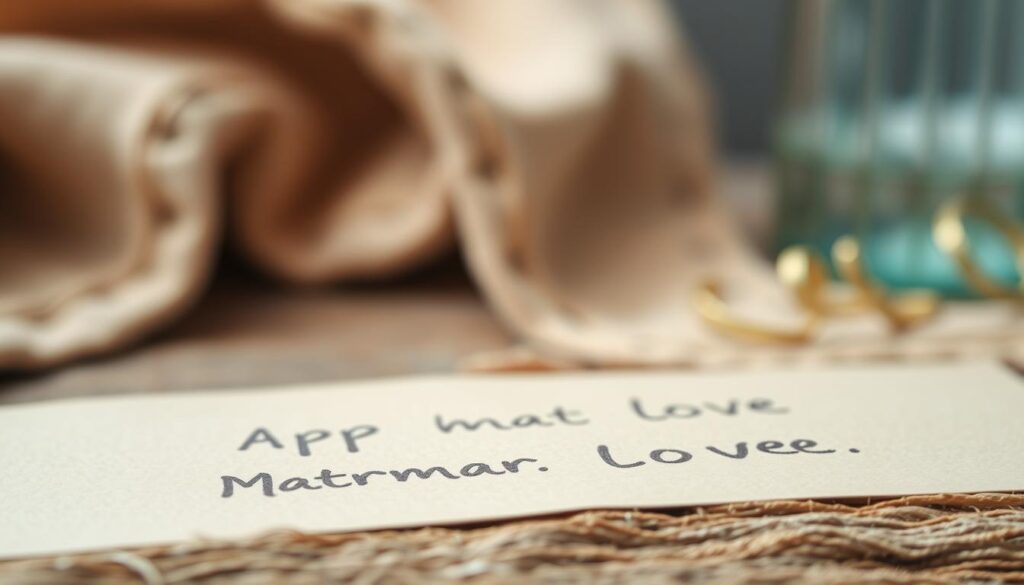 App mat Love
Matrmar. Lovee.